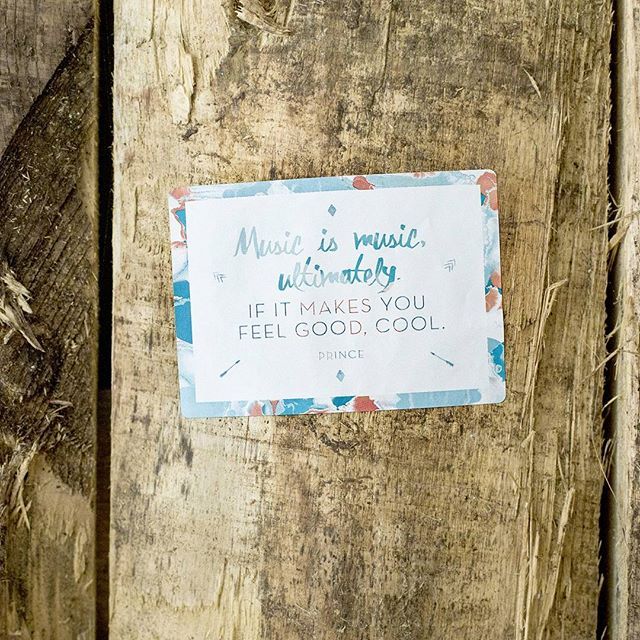 Music is music,
ultimately
IF IT MAKES YOU
FEEL GOOD, COOL.
PRINCE